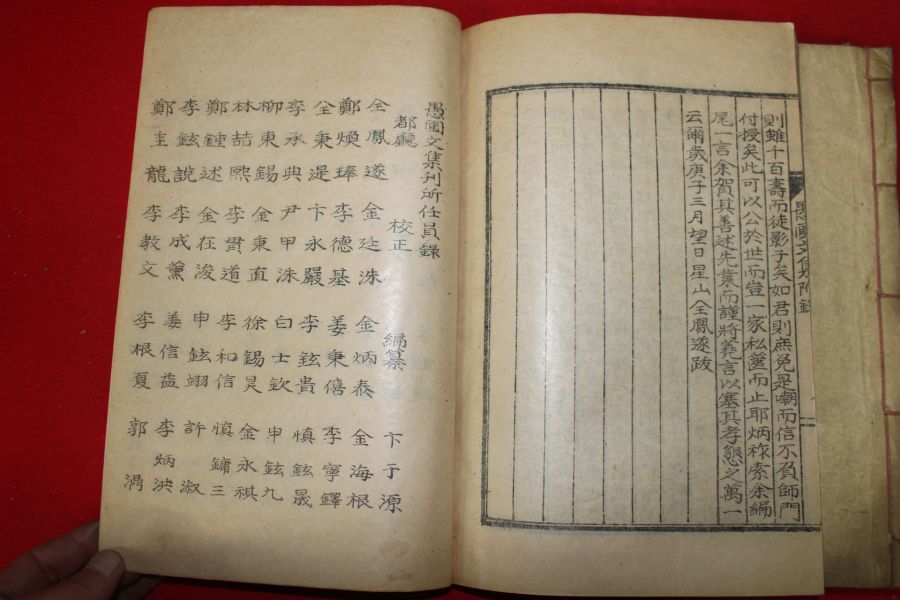 則雖十百壽而徒影子矣如君則庶免是嘲而信不負師門
付授矣此可以公於世而豈一家私篋而止耶炳祚索余編
尾一言余賀其善述先業而謹將蕘言以塞其孝懇之萬一
云爾歲庚子三月望日星山全鳳遂跋
愚園文集附錄
愚園文集刊所任員錄
都廳 校正 編纂 卞于源
全鳳遂 金廷洙 金炳泰 金海根
鄭煥琫 李德基 姜秉僖 李寧鐸
全秉湜 卞永嚴 李鉉貴 愼鉉晟
李承典 尹甲洙 白士欽 申鉉九
柳東錫 金秉直 徐錫昊 金永祺
林喆熙 李貫道 李和信 愼鏞三
鄭鍾述 金在浚 申鉉翊 許淑
李鉉說 李成薰 姜信益 李炳泱
鄭圭龍 李教文 李根夏 郭